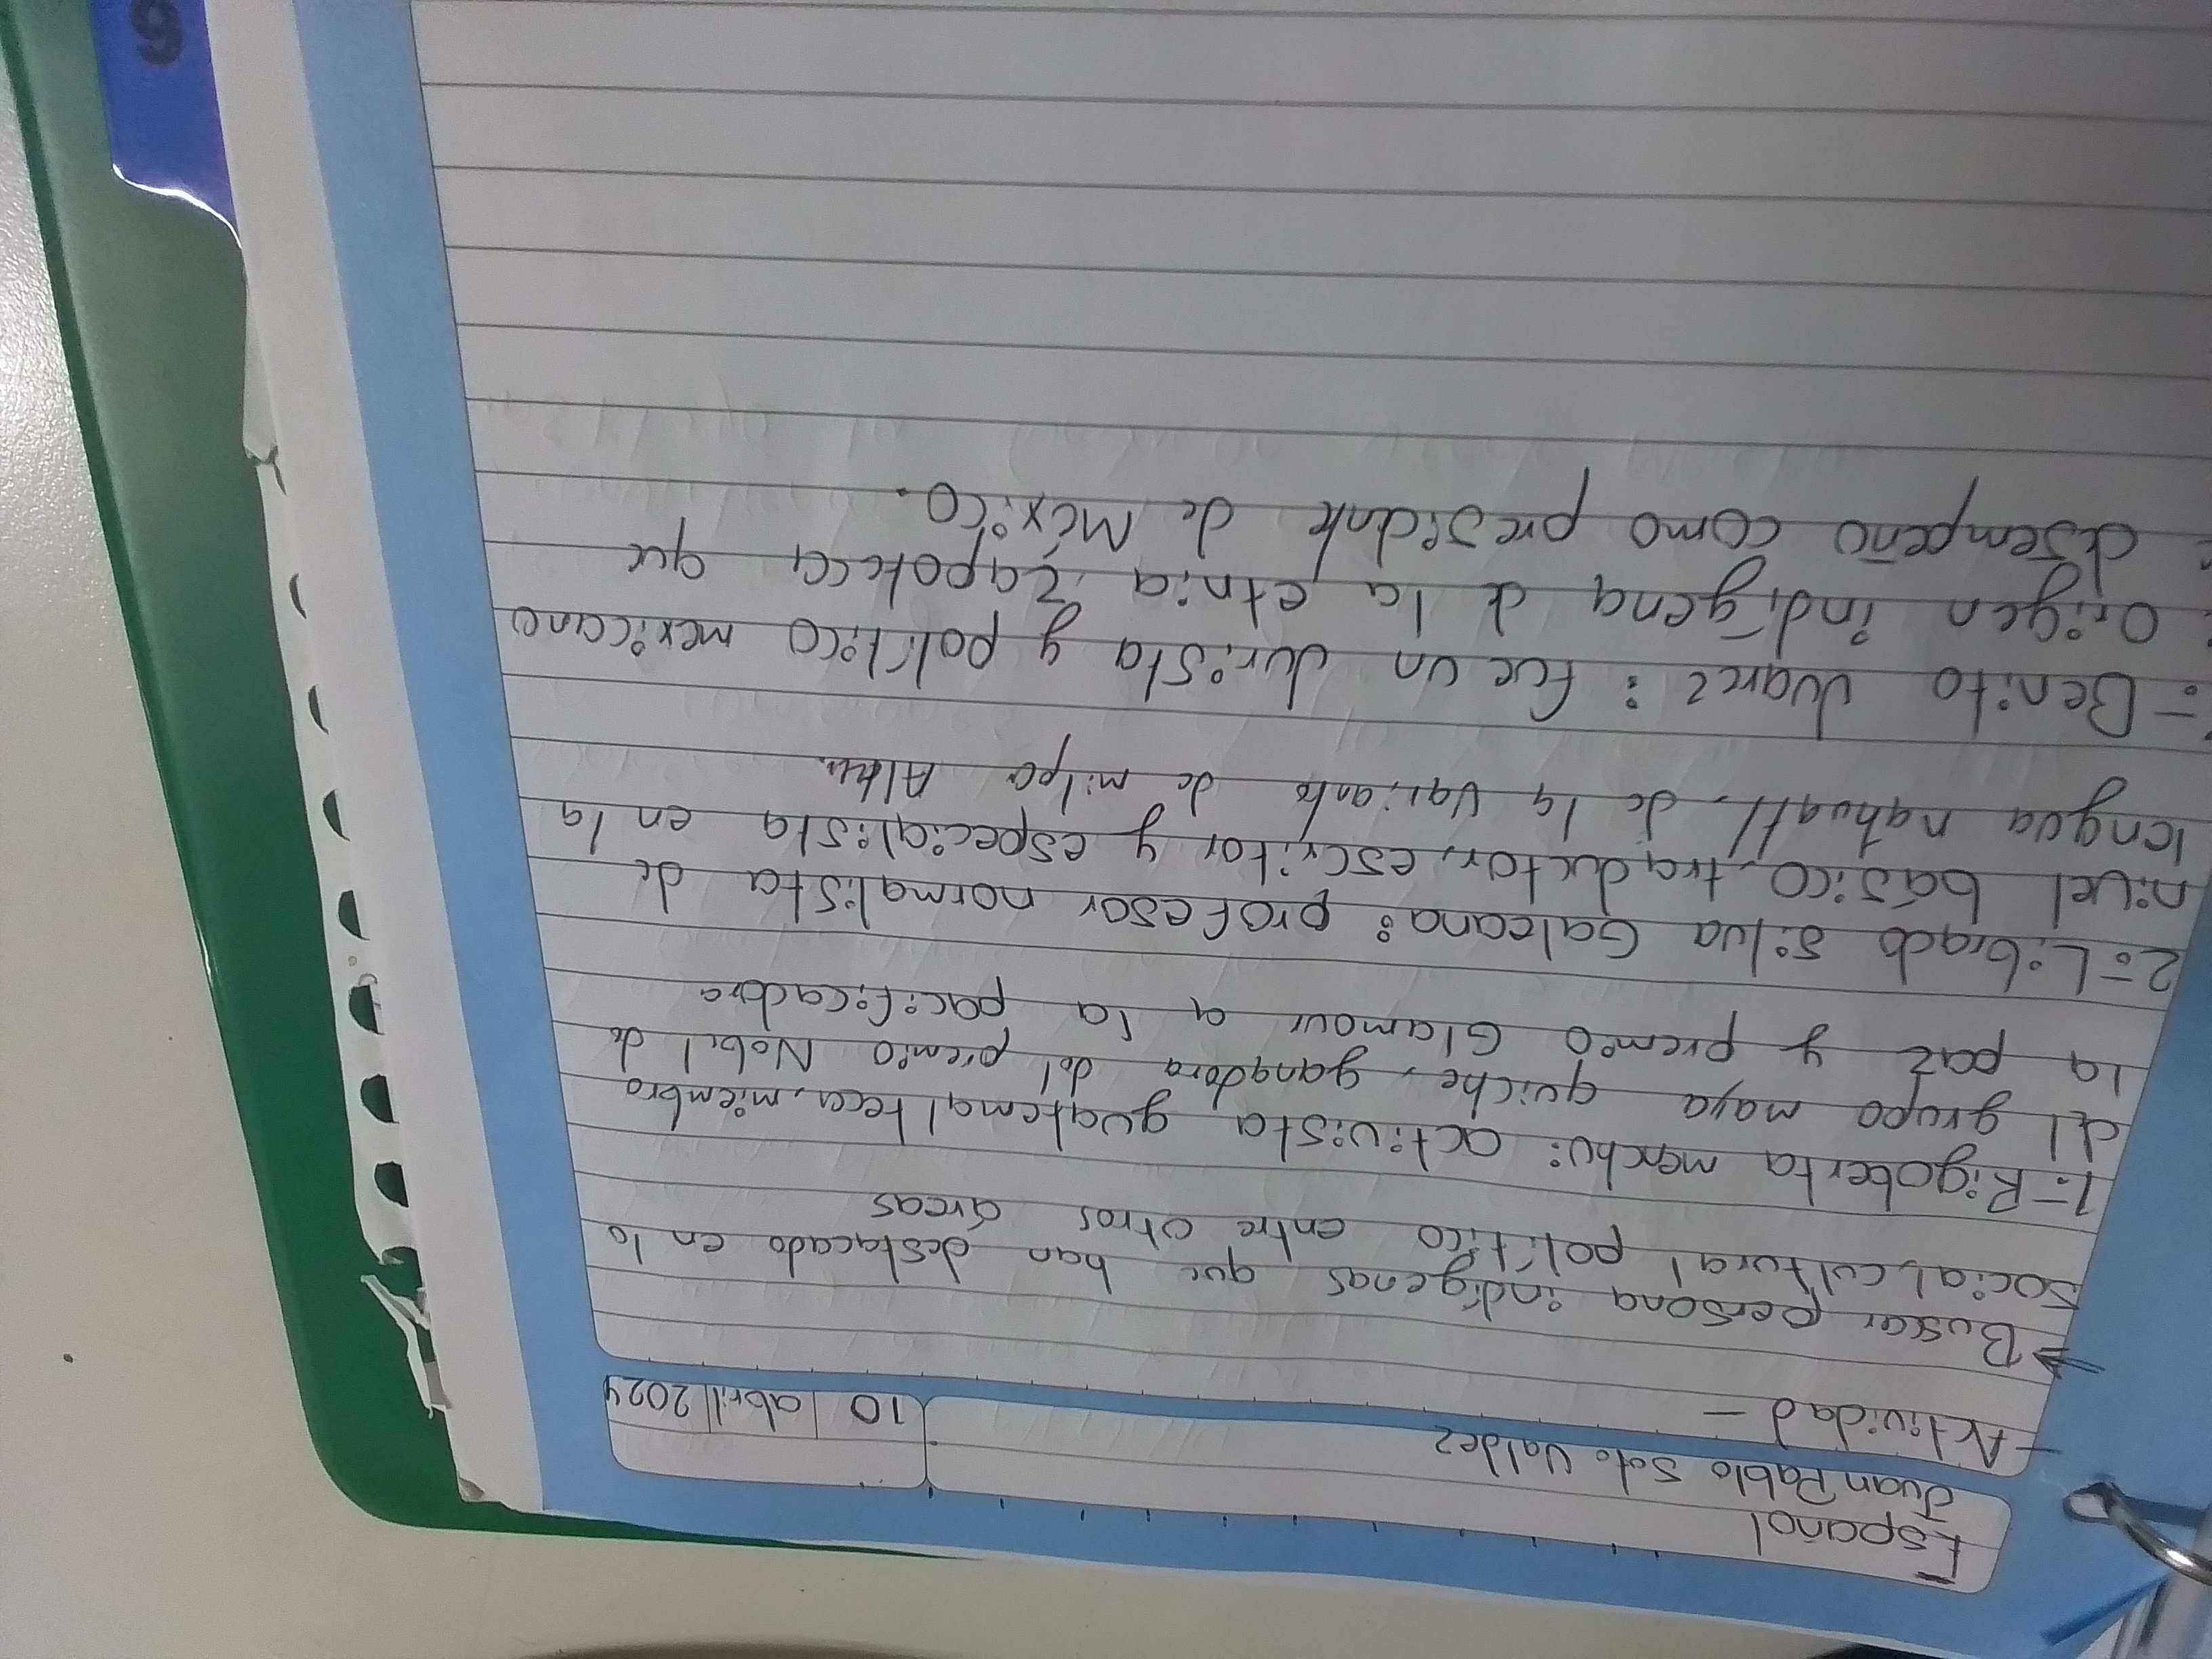 Español
Juan Pablo Soto Valdez
10 abril 2024
- Actividad -
→ Buscar persona indígenas que han destacado en lo
social, cultural político entre otros áreas
1:- Rigoberta menchu: activista guatemalteca, miembro
del grupo maya quiche, ganadora del premio Nobel de
la paz y premio Glamour a la pacificadora
2:- Librado silva Galeana: profesor normalista de
nivel básico, traductor, escritor y especialista en la
lengua nahuatl, de la variante de milpa Alta.
:- Benito Juarez: fue un jurista y político mexicano
origen indígena de la etnia zapoteca que
desempeño como presidente de México.
6